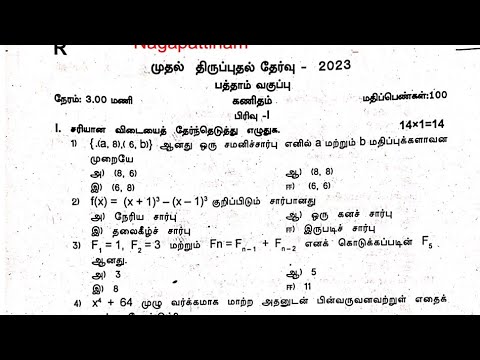 R Nagapattinam
முதல் திருப்புதல் தேர்வு - 2023
பத்தாம் வகுப்பு
நேரம்: 3.00 மணி கணிதம் மதிப்பெண்கள்:100
பிரிவு -I
I. சரியான விடையைத் தேர்ந்தெடுத்து எழுதுக. 14×1=14
1) {(a, 8),( 6, b)} ஆனது ஒரு சமனிச்சார்பு எனில் a மற்றும் b மதிப்புக்களாவன
முறையே
அ) (8, 6) ஆ) (8, 8)
இ) (6, 8) ஈ) (6, 6)
2) f(x) = (x + 1)³ – (x – 1)³ குறிப்பிடும் சார்பானது
அ) நேரிய சார்பு ஆ) ஒரு கனச் சார்பு
இ) தலைகீழ்ச் சார்பு ஈ) இருபடிச் சார்பு
3) F₁ = 1, F₂ = 3 மற்றும் Fn = Fₙ₋₁ + Fₙ₋₂ எனக் கொடுக்கப்படின் F₅
ஆனது.
அ) 3 ஆ) 5
இ) 8 ஈ) 11
4) x⁴ + 64 முழு வர்க்கமாக மாற்ற அதனுடன் பின்வருவனவற்றுள் எதைக்